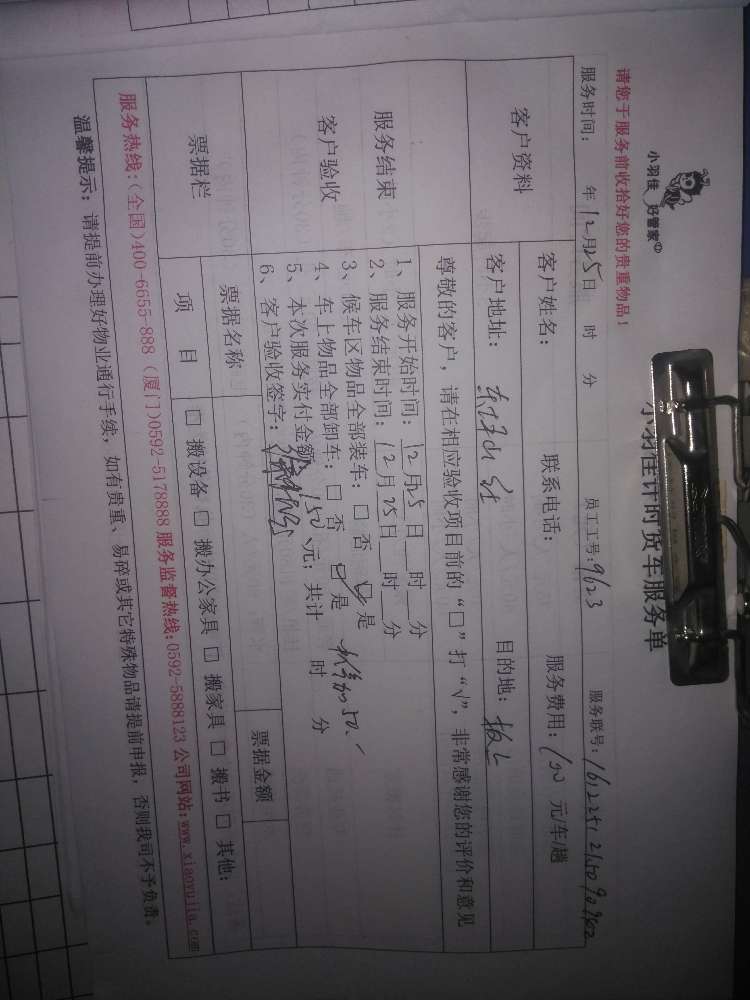 小羽佳 好管家
小羽佳计时货车服务单
请您于服务前收拾好您的贵重物品！
员工工号：9623
服务联号：
服务时间： 年12月25日 时 分
客户资料
客户姓名： 联系电话： 服务费用： 元/车/趟
客户地址： 目的地：
尊敬的客户，请在相应验收项目前的“□”打“√”，非常感谢您的评价和意见
服务结束
客户验收
1、服务开始时间：12月25日 时 分
2、服务结束时间：12月25日 时 分
3、候车区物品全部装车：□ 否 □ 是
4、车上物品全部卸车：□ 否 □ 是
5、本次服务实付金额 150 元；共计 时 分
6、客户验收签字：
票据栏
票据名称 票据金额
项 目 □ 搬设备 □ 搬办公家具 □ 搬家具 □ 搬书 □ 其他：
服务热线：(全国)400-6655-888 (厦门)0592-5178888 服务监督热线：0592-5888123 公司网站：www.xiaoyujia.com
温馨提示：请提前办理好物业通行手续，如有贵重、易碎或其它特殊物品请提前申报，否则我司不予负责。